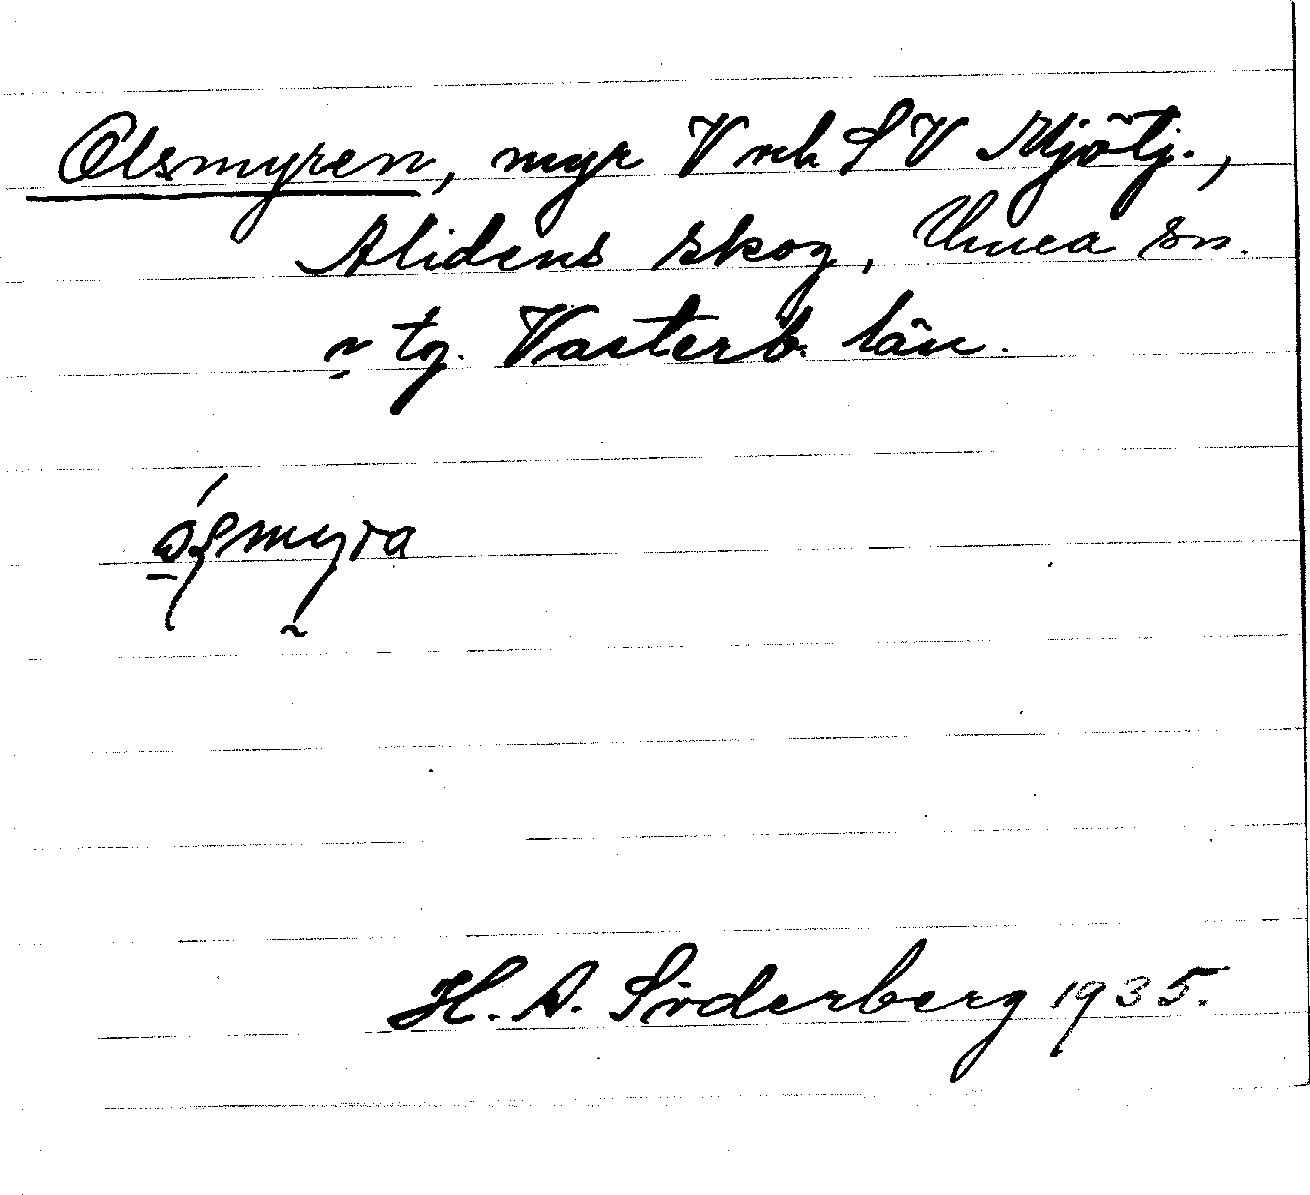 Olsmyren, myr V och SV Mjötj.,
Alidens skog, Umeå sn.
o tg. Västerb. län.
H. A. Söderberg 1935.